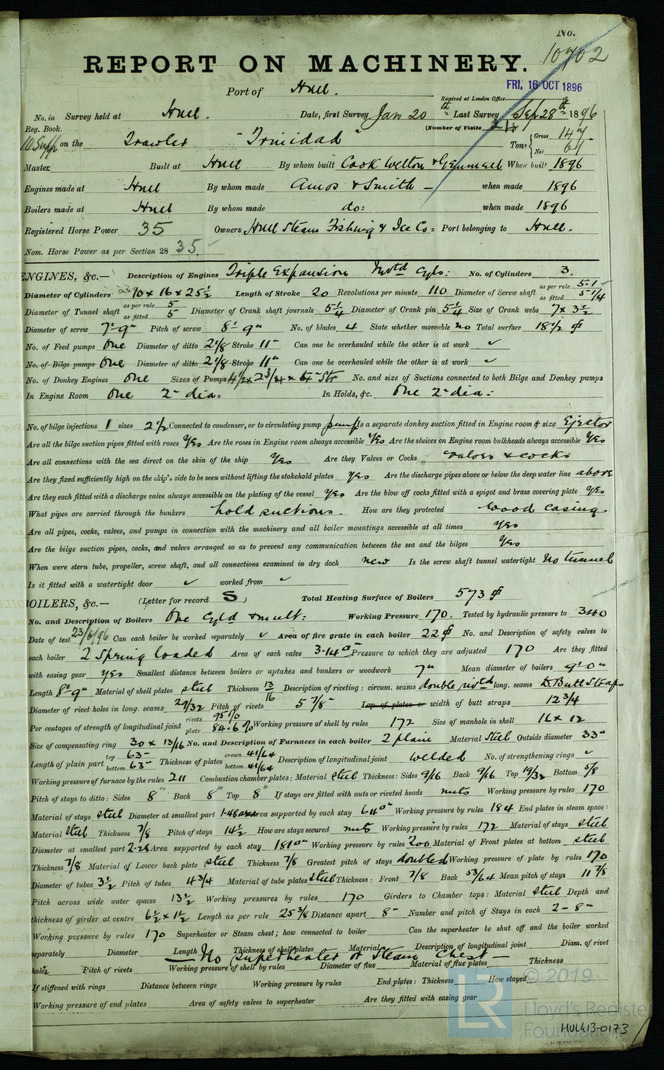 No.
10702
REPORT ON MACHINERY.
Port of Hull.
FRI. 16 OCT 1896
Received at London Office
No. in Survey held at Hull. Date, first Survey Jan 20th Last Survey Sep 28th 1896
Reg. Book. (Number of Visits
on the Trawler "Trinidad" Tons Gross 147 Net 61
Master Built at Hull By whom built Cook Welton & Gemmell When built 1896
Engines made at Hull By whom made Amos & Smith when made 1896
Boilers made at Hull By whom made do: when made 1896
Registered Horse Power 35 Owners Hull Steam Fishing & Ice Co: Port belonging to Hull.
Nom. Horse Power as per Section 28 35.
ENGINES, &c.— Description of Engines Triple Expansion Invtd Cyls: No. of Cylinders 3.
Diameter of Cylinders 10 x 16 x 25 1/2 Length of Stroke 20 Revolutions per minute 110 Diameter of Screw shaft as per rule 5.1 as fitted 5 1/4
Diameter of Tunnel shaft as per rule 5 as fitted 5 Diameter of Crank shaft journals 5 1/4 Diameter of Crank pin 5 1/4 Size of Crank webs 7 x 3 1/2
Diameter of screw 7'-9" Pitch of screw 8'-9" No. of blades 4 State whether moveable no Total surface 18 1/2
No. of Feed pumps One Diameter of ditto 2 1/8 Stroke 11" Can one be overhauled while the other is at work ✓
No. of Bilge pumps One Diameter of ditto 2 1/8 Stroke 11" Can one be overhauled while the other is at work ✓
No. of Donkey Engines One Sizes of Pumps 4 1/2 x 2 3/4 x 6 Str No. and size of Suctions connected to both Bilge and Donkey pumps
In Engine Room One 2" dia. In Holds, &c. One 2" dia:
No. of bilge injections 1 sizes 2 1/2 Connected to condenser, or to circulating pump pump Is a separate donkey suction fitted in Engine room & size Ejector
Are all the bilge suction pipes fitted with roses Yes Are the roses in Engine room always accessible Yes Are the sluices on Engine room bulkheads always accessible Yes
Are all connections with the sea direct on the skin of the ship Yes Are they Valves or Cocks valves & cocks
Are they fixed sufficiently high on the ship's side to be seen without lifting the stokehold plates Yes Are the discharge pipes above or below the deep water line above
Are they each fitted with a discharge valve always accessible on the plating of the vessel Yes Are the blow off cocks fitted with a spigot and brass covering plate Yes
What pipes are carried through the bunkers hold suctions. How are they protected wood casing
Are all pipes, cocks, valves, and pumps in connection with the machinery and all boiler mountings accessible at all times Yes
Are the bilge suction pipes, cocks, and valves arranged so as to prevent any communication between the sea and the bilges Yes
When were stern tube, propeller, screw shaft, and all connections examined in dry dock new Is the screw shaft tunnel watertight No tunnel
Is it fitted with a watertight door ✓ worked from ✓
BOILERS, &c.— (Letter for record S) Total Heating Surface of Boilers 573
No. and Description of Boilers One Cyld & mult: Working Pressure 170. Tested by hydraulic pressure to 340
Date of test 23/6/96 Can each boiler be worked separately ✓ Area of fire grate in each boiler 22 No. and Description of safety valves to
each boiler 2 Spring loaded Area of each valve 3.14 Pressure to which they are adjusted 170 Are they fitted
with easing gear Yes Smallest distance between boilers or uptakes and bunkers or woodwork 7" Mean diameter of boilers 9'-0"
Length 8'-9" Material of shell plates steel Thickness 13/16 Description of riveting: circum. seams double rivtd long. seams D. Butt Straps
Diameter of rivet holes in long. seams 27/32 Pitch of rivets 5 7/8 Lap of plates or width of butt straps 12 3/4
Per centages of strength of longitudinal joint rivets 95% plate 84.6% Working pressure of shell by rules 172 Size of manhole in shell 16 x 12
Size of compensating ring 30 x 13/16 No. and Description of Furnaces in each boiler 2 plain Material Steel Outside diameter 33"
Length of plain part top 63" bottom 63" Thickness of plates crown 41/64 bottom 41/64 Description of longitudinal joint welded No. of strengthening rings ✓
Working pressure of furnace by the rules 211 Combustion chamber plates: Material Steel Thickness: Sides 9/16 Back 9/16 Top 19/32 Bottom 5/8
Pitch of stays to ditto: Sides 8" Back 8" Top 8" If stays are fitted with nuts or riveted heads nuts Working pressure by rules 170
Material of stays steel Diameter at smallest part 1.48 Area supported by each stay 64 Working pressure by rules 184 End plates in steam space:
Material Steel Thickness 7/8 Pitch of stays 14 1/2 How are stays secured nuts Working pressure by rules 172 Material of stays steel
Diameter at smallest part 2.24 Area supported by each stay 181 Working pressure by rules 200 Material of Front plates at bottom steel
Thickness 7/8 Material of Lower back plate steel Thickness 7/8 Greatest pitch of stays doubled Working pressure of plate by rules 170
Diameter of tubes 3 1/2 Pitch of tubes 4 3/4 Material of tube plates steel Thickness: Front 7/8 Back 53/64 Mean pitch of stays 11 7/8
Pitch across wide water spaces 13 1/2 Working pressures by rules 170 Girders to Chamber tops: Material steel Depth and
thickness of girder at centre 6 1/2 x 1 1/2 Length as per rule 25 3/8 Distance apart 8" Number and pitch of Stays in each 2 - 8"
Working pressure by rules 170 Superheater or Steam chest; how connected to boiler Can the superheater be shut off and the boiler worked
separately Diameter Length Thickness of shell plates Material Description of longitudinal joint Diam. of rivet
No Superheater or Steam Chest
holes Pitch of rivets Working pressure of shell by rules Diameter of flue Material of flue plates Thickness
If stiffened with rings Distance between rings Working pressure by rules End plates: Thickness How stayed
Working pressure of end plates Area of safety valves to superheater Are they fitted with easing gear
© 2019
LR
Lloyd's Register
Foundation
HUL13-0173